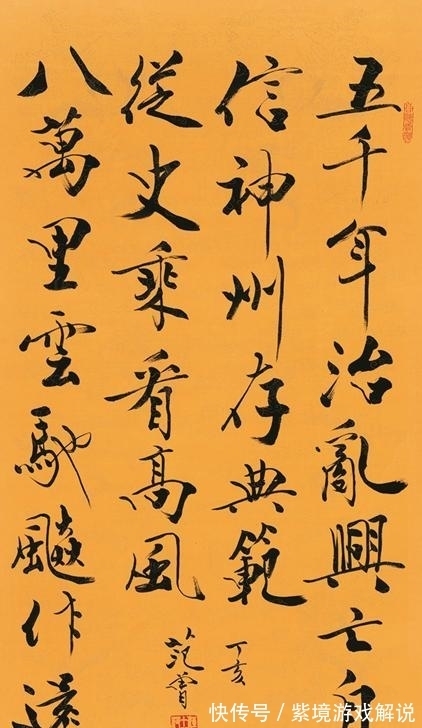 五千年治亂興亡自
信神州存典範
八萬里雲馳飈作還
從史乘看高風
丁亥
范曾
快传号 / 紫境游戏解说